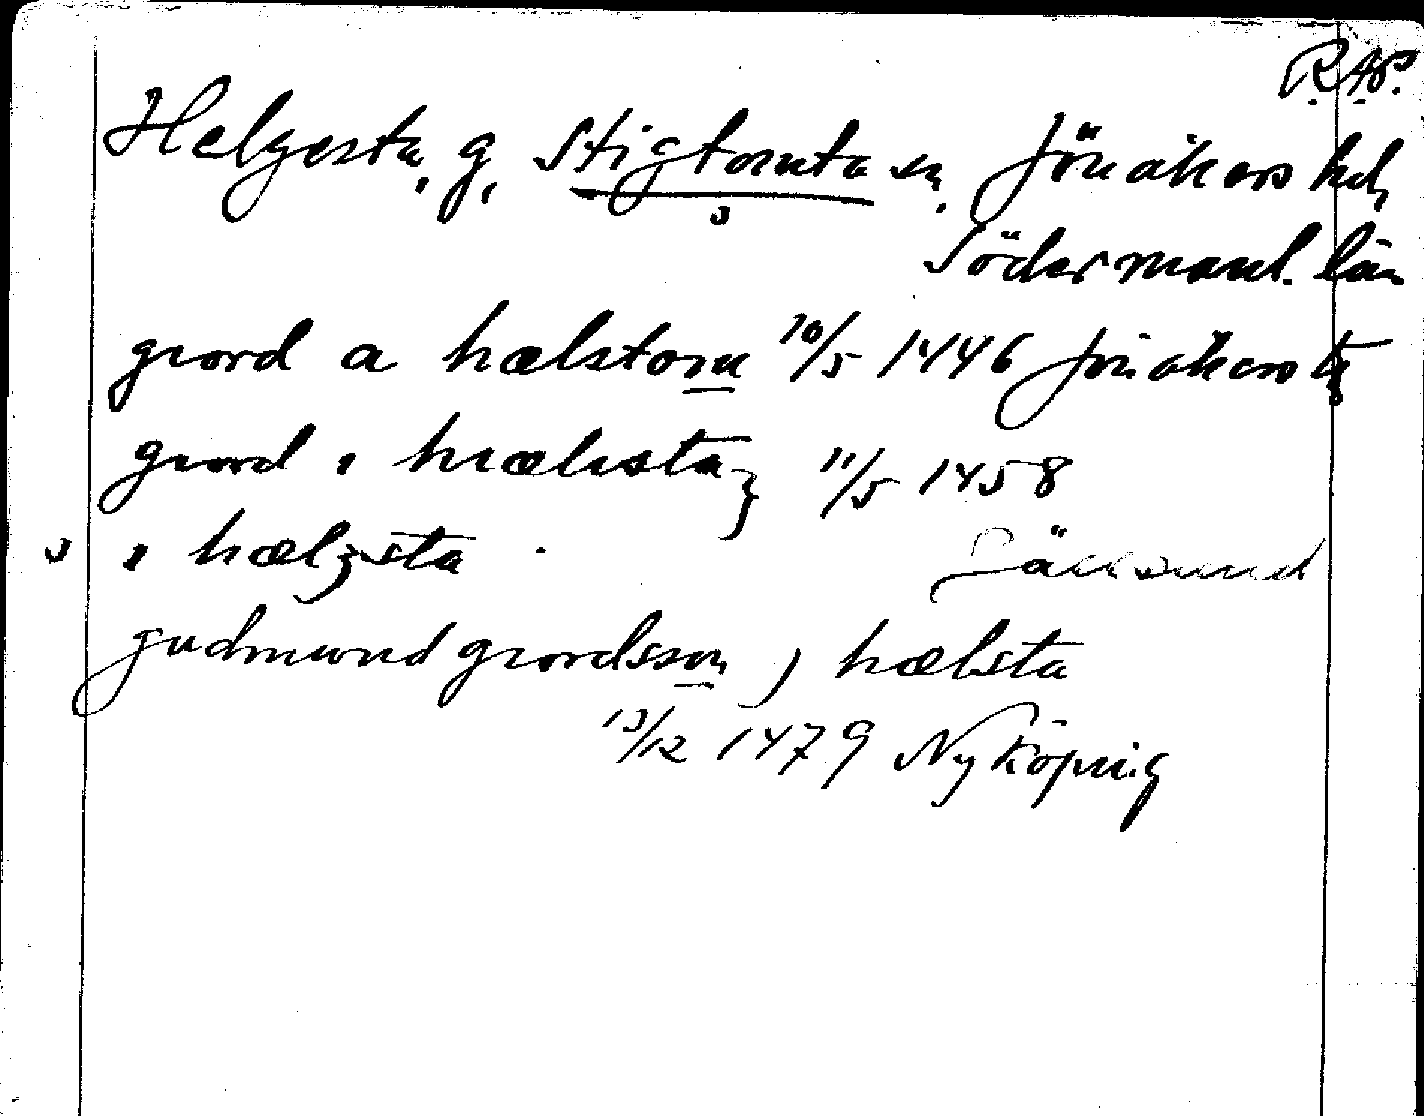 R.A.P.
Helgesta, g, Stigtomta sn. Jönåkers hd,
Södermanl. län
giord a hælstom 10/5 1446 Jönåkers tg
giord i hiælsta 11/5 1458
i hælgsta
gudmund giordsson j hælsta
13/12 1479 Nyköping